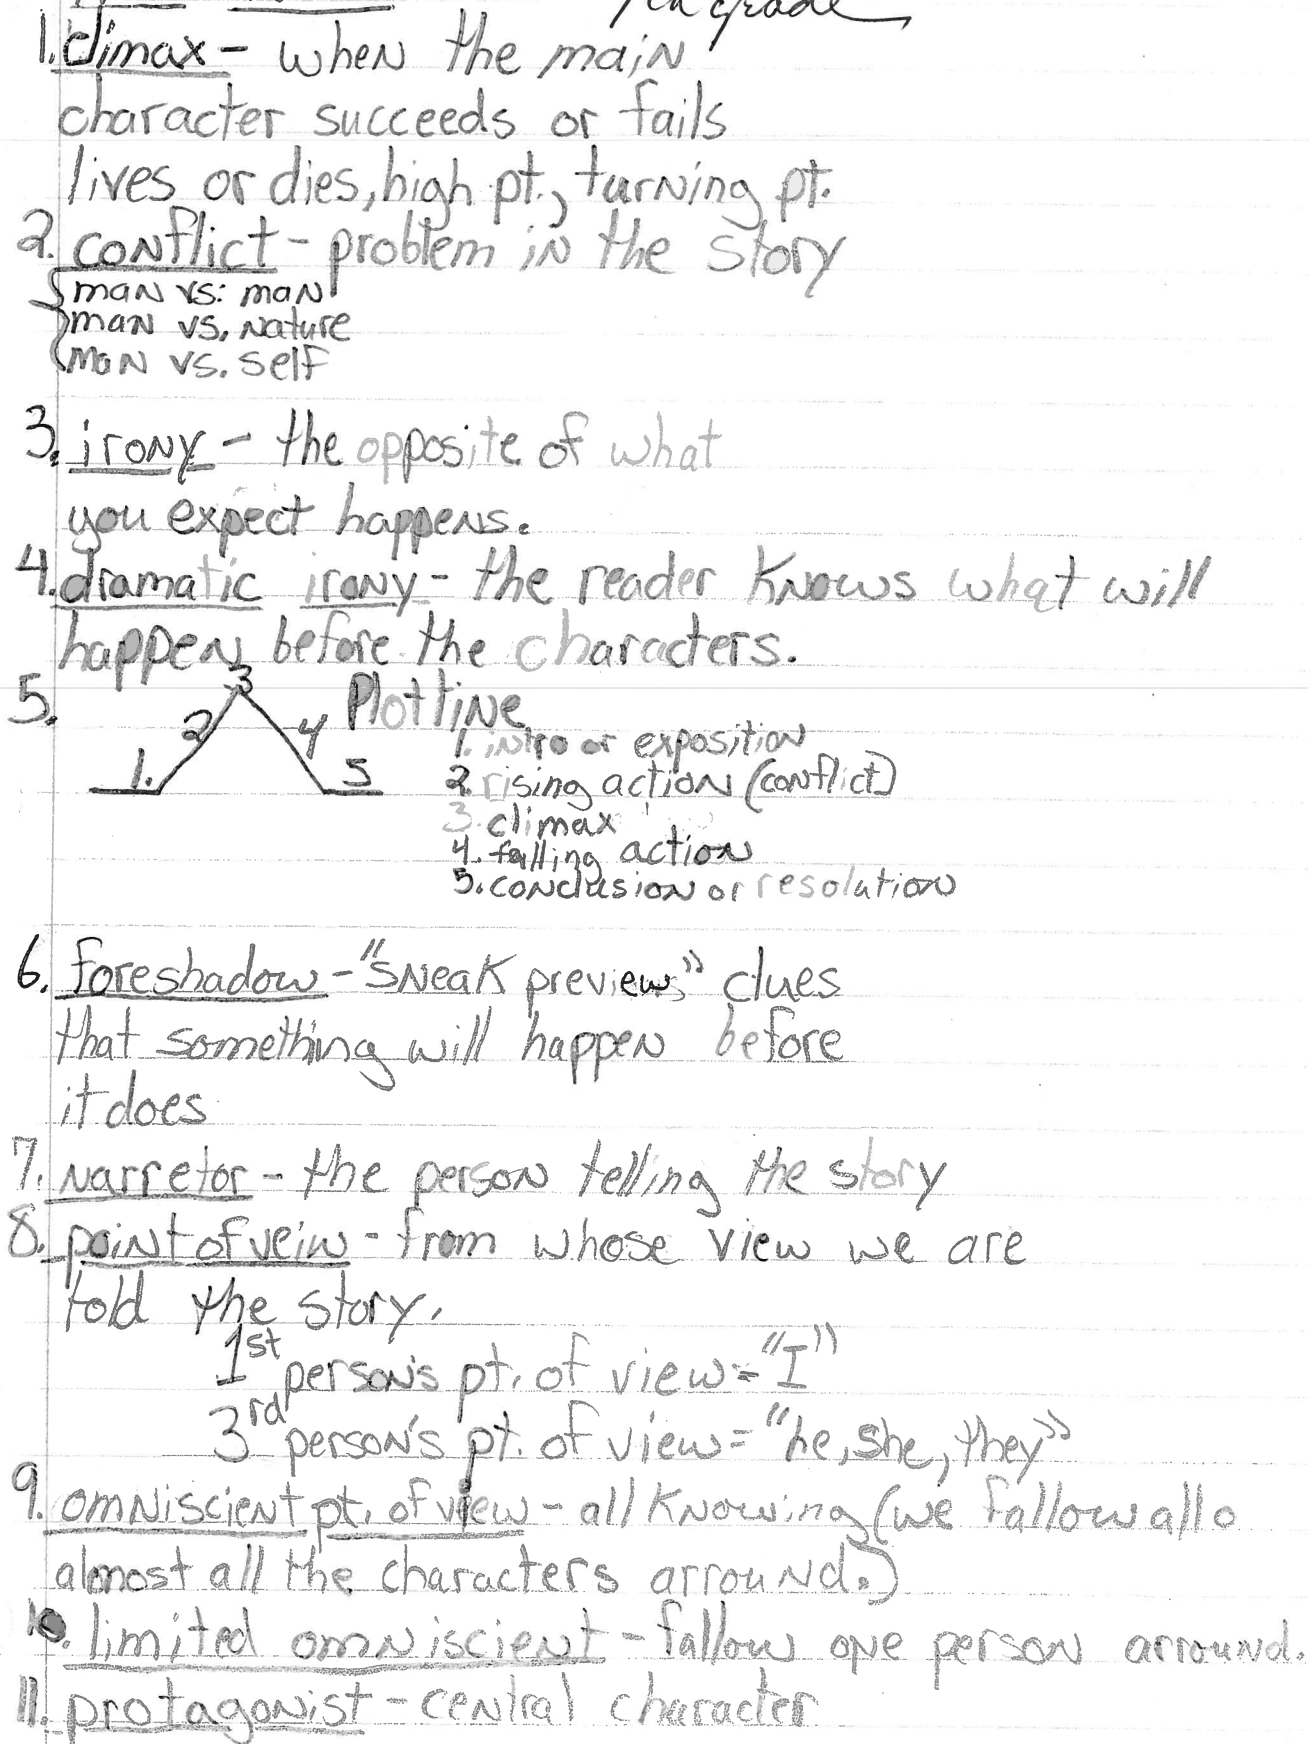 grade
1. climax - when the main
character succeeds or fails
lives or dies, high pt., turning pt.
2. conflict - problem in the story
man vs. man
man vs. nature
man vs. self
3. irony - the opposite of what
you expect happens.
4. dramatic irony - the reader knows what will
happen before the characters.
5. Plotline
1. 2 3 4 5
1. intro or exposition
2. rising action (conflict)
3. climax
4. falling action
5. conclusion or resolution
6. foreshadow - "sneak previews" clues
that something will happen before
it does
7. narretor - the person telling the story
8. point of veiw - from whose view we are
told the story.
1st person's pt. of view = "I"
3rd person's pt. of view = "he, she, they"
9. omniscient pt. of view - all knowing (we fallow all o
almost all the characters arround.)
10. limited omniscient - fallow one person arround.
11. protagonist - central character